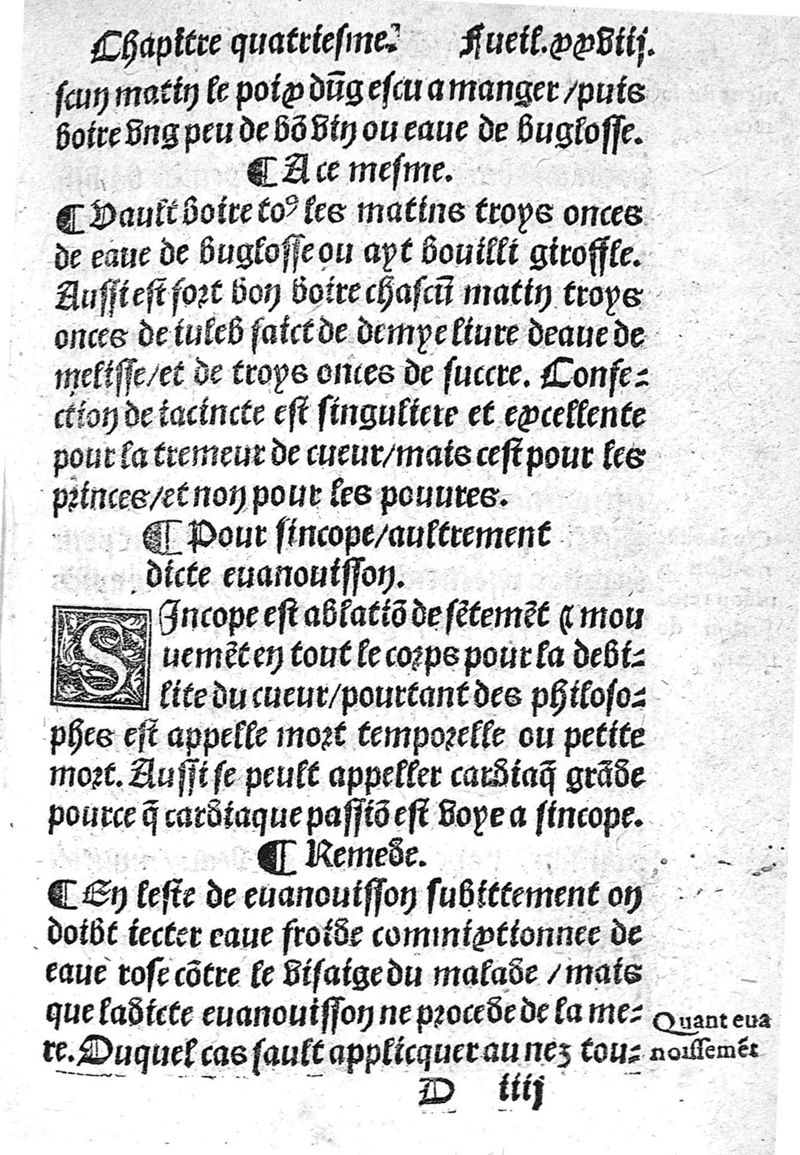 Chapitre quatriesme. Fueil.xxviij.
scun matin le poix dũg escu a manger/puis
boire vng peu de bõ vin ou eaue de buglosse.
¶ A ce mesme.
¶ Vault boire toꝰ les matins troys onces
de eaue de buglosse ou ayt bouilli giroffle.
Aussi est fort bon boire chascũ matin troys
onces de iuleb faict de demye liure deaue de
melisse/et de troys onces de succre. Confe-
ction de iacincte est singuliere et excellente
pour la tremeur de cueur/mais cest pour les
princes/et non pour les pouures.
¶ Pour sincope/aultrement
dicte euanouisson.
SIncope est ablatiõ de sẽtemẽt ⁊ mou
uemẽt en tout le corps pour la debi-
lite du cueur/pourtant des philoso-
phes est appelle mort temporelle ou petite
mort. Aussi se peult appeller cardiaq̃ grãde
pource q̃ cardiaque passiõ est voye a sincope.
¶ Remede.
¶ En leste de euanouisson subittement on
doibt iecter eaue froide commixtionnee de
eaue rose cõtre le visaige du malade /mais
que ladicte euanouisson ne procede de la me-
re. Duquel cas fault applicquer au nez tou-
Quant eua
noissemẽt
D iiij